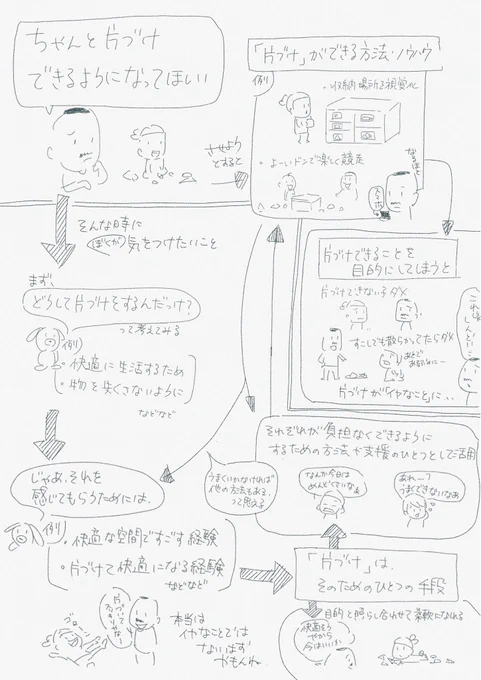 ちゃんと片づけ
できるようになってほしい
させよう
とすると
「片づけ」ができる方法・ノウハウ
例)
・収納場所を視覚化
・よーいドンで楽しく競走
なるほど
そんな時に
ぼくが気をつけたいこと
片づけできることを
目的にしてしまうと
片づけできない子ダメ
すこしでも散らかってたらダメ
あとで
片づけが「イヤなこと」に‥
これは
しんどい‥
まず、
どうして片づけをするんだっけ?
って考えてみる
例)
・快適に生活するため
・物を失くさないように
などなど
それぞれが負担なくできるように
するための方法や支援のひとつとして活用
うまくいかなければ
他の方法もある、
って思える
なんか今日は
めんどくさいなぁ
あれー?
うまくできないなぁ
じゃあ、それを
感じてもらうためには、
例)
・快適な空間ですごす経験
・片づけて快適になる経験
などなど
「片づけ」は、
そのためのひとつの手段
目的と照らし合わせて柔軟になれる
快適そう
やから
今はいいか
片づいて
本当は
イヤなことでは
ないはず
かもんね